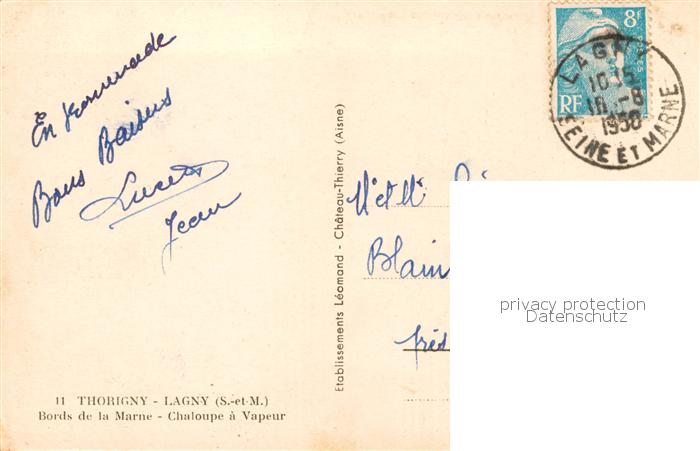 En promenade
Bons Baisers
Lucette
Jean
11 THORIGNY - LAGNY (S.-et-M.)
Bords de la Marne - Chaloupe à Vapeur
Etablissements Léomand - Château-Thierry (Aisne)
8F
RF
LAGNY
1950
SEINE ET MARNE
M. et M
Blain
près
privacy protection
Datenschutz